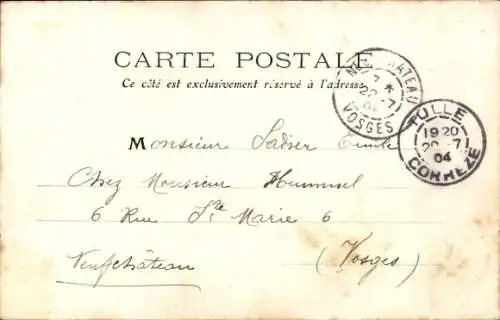 CARTE POSTALE
Ce côté est exclusivement réservé à l'adresse
NEUFCHATEAU
7 *
20 -7
04
VOSGES
TULLE
19 20
20 -7
04
CORREZE
Monsieur Emile
Chez Monsieur Hummel
6 Rue Ste Marie 6
Neufchâteau
(Vosges)